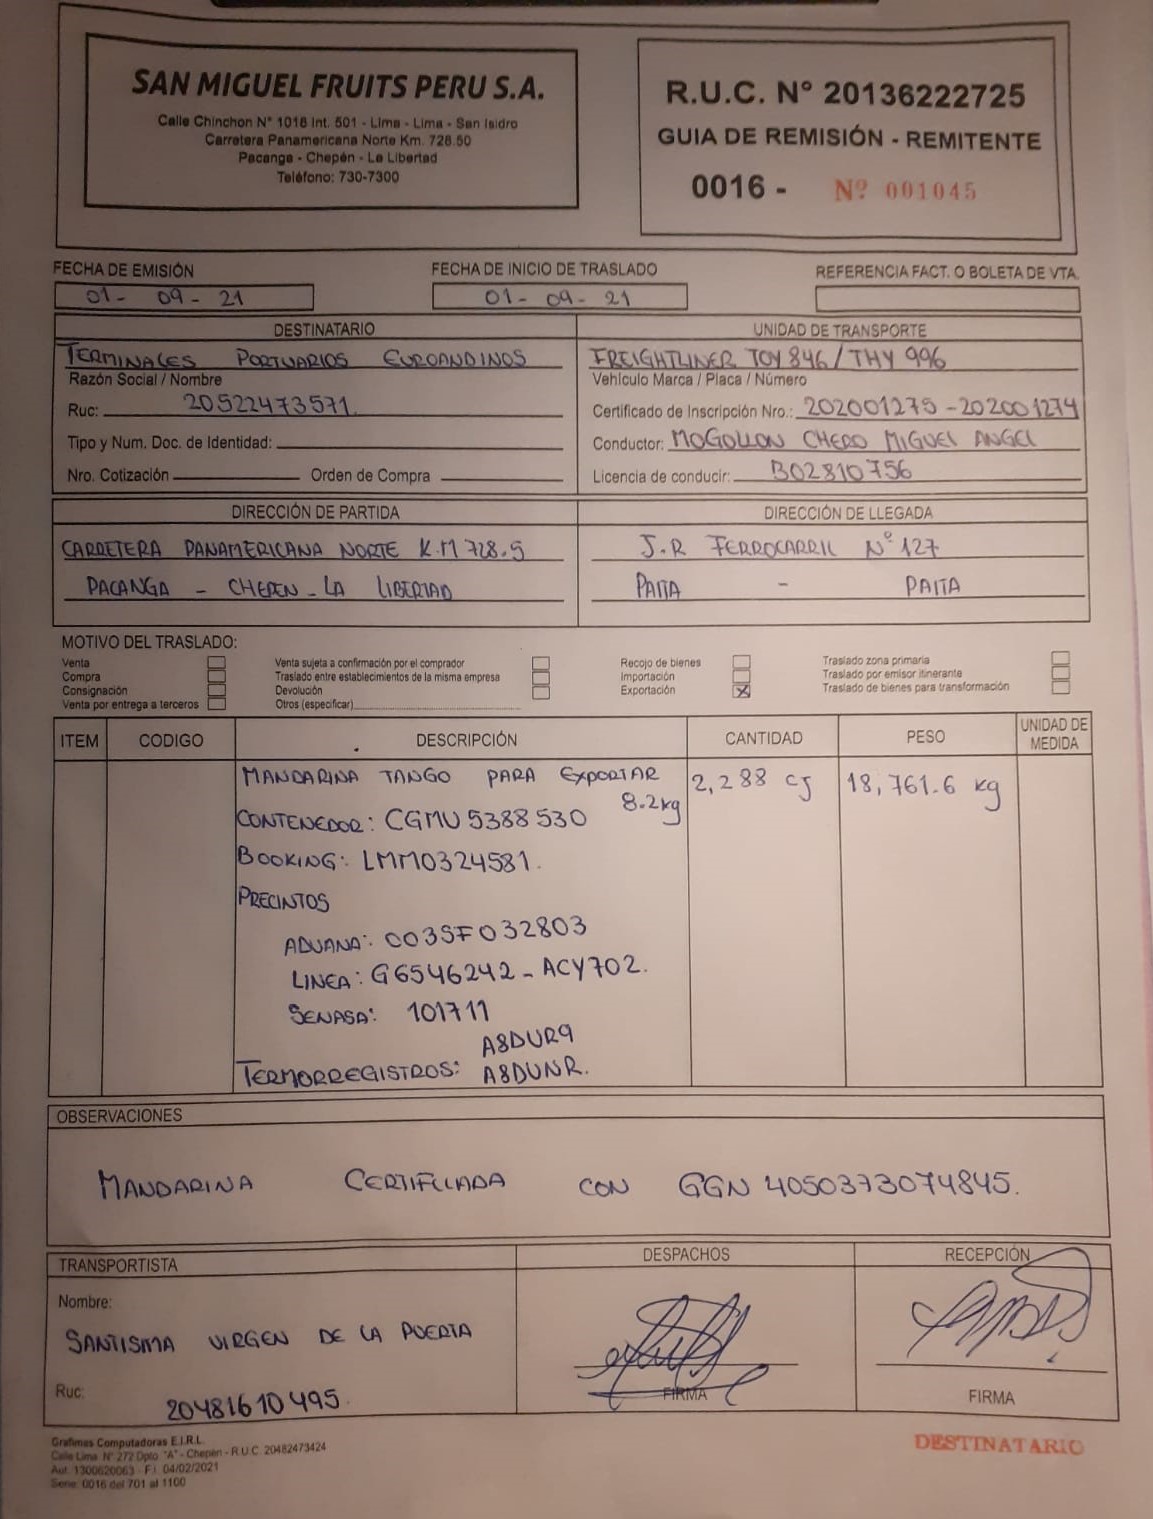 SAN MIGUEL FRUITS PERU S.A.
Calle Chinchon N° 1016 Int. 501 - Lima - Lima - San Isidro
Carretera Panamericana Norte Km. 728.50
Pacanga - Chepén - La Libertad
Teléfono: 730-7300
R.U.C. N° 20136222725
GUIA DE REMISIÓN - REMITENTE
0016 - Nº 001045
FECHA DE EMISIÓN
01- 09 - 21
FECHA DE INICIO DE TRASLADO
01- 09- 21
REFERENCIA FACT. O BOLETA DE VTA.
DESTINATARIO
TERMINALES PORTUARIOS EUROANDINOS
Razón Social / Nombre
Ruc: 20522473571
Tipo y Num. Doc. de Identidad:
Nro. Cotización Orden de Compra
UNIDAD DE TRANSPORTE
FREIGHTLINER TOY 846 / THY 996
Vehículo Marca / Placa / Número
Certificado de Inscripción Nro.: 202001275 - 202001274
Conductor: MOGOLLON CHERO MIGUEL ANGEL
Licencia de conducir: B02810756
DIRECCIÓN DE PARTIDA
CARRETERA PANAMERICANA NORTE K.M 728.5
PACANGA - CHEPEN - LA LIBERTAD
DIRECCIÓN DE LLEGADA
J.R FERROCARRIL N° 127
PAITA - PAITA
MOTIVO DEL TRASLADO:
Venta
Compra
Consignación
Venta por entrega a terceros
Venta sujeta a confirmación por el comprador
Traslado entre establecimientos de la misma empresa
Devolución
Otros (especificar)
Recojo de bienes
Importación
Exportación X
Traslado zona primaria
Traslado por emisor itinerante
Traslado de bienes para transformación
ITEM CODIGO DESCRIPCIÓN CANTIDAD PESO UNIDAD DE MEDIDA
MANDARINA TANGO PARA EXPORTAR 2,288 CJ 18,761.6 kg
8.2kg
CONTENEDOR: CGMU 5388530
BOOKING: LMM0324581.
PRECINTOS
ADUANA: 003SF032803
LINEA: G6546242 - ACY702.
SENASA: 101711
A8DUR9
TERMORREGISTROS: A8DUNR.
OBSERVACIONES
MANDARINA CERTIFICADA CON GGN 4050373074845.
TRANSPORTISTA
Nombre:
SANTISIMA VIRGEN DE LA PUERTA
Ruc: 20481610495
DESPACHOS
FIRMA
RECEPCIÓN
FIRMA
Grafimes Computadoras E.I.R.L.
Calle Lima N° 272 Dpto. "A" - Chepén - R.U.C. 20482473424
Aut. 1300620063 - F.I. 04/02/2021
Serie: 0016 del 701 al 1100
DESTINATARIO